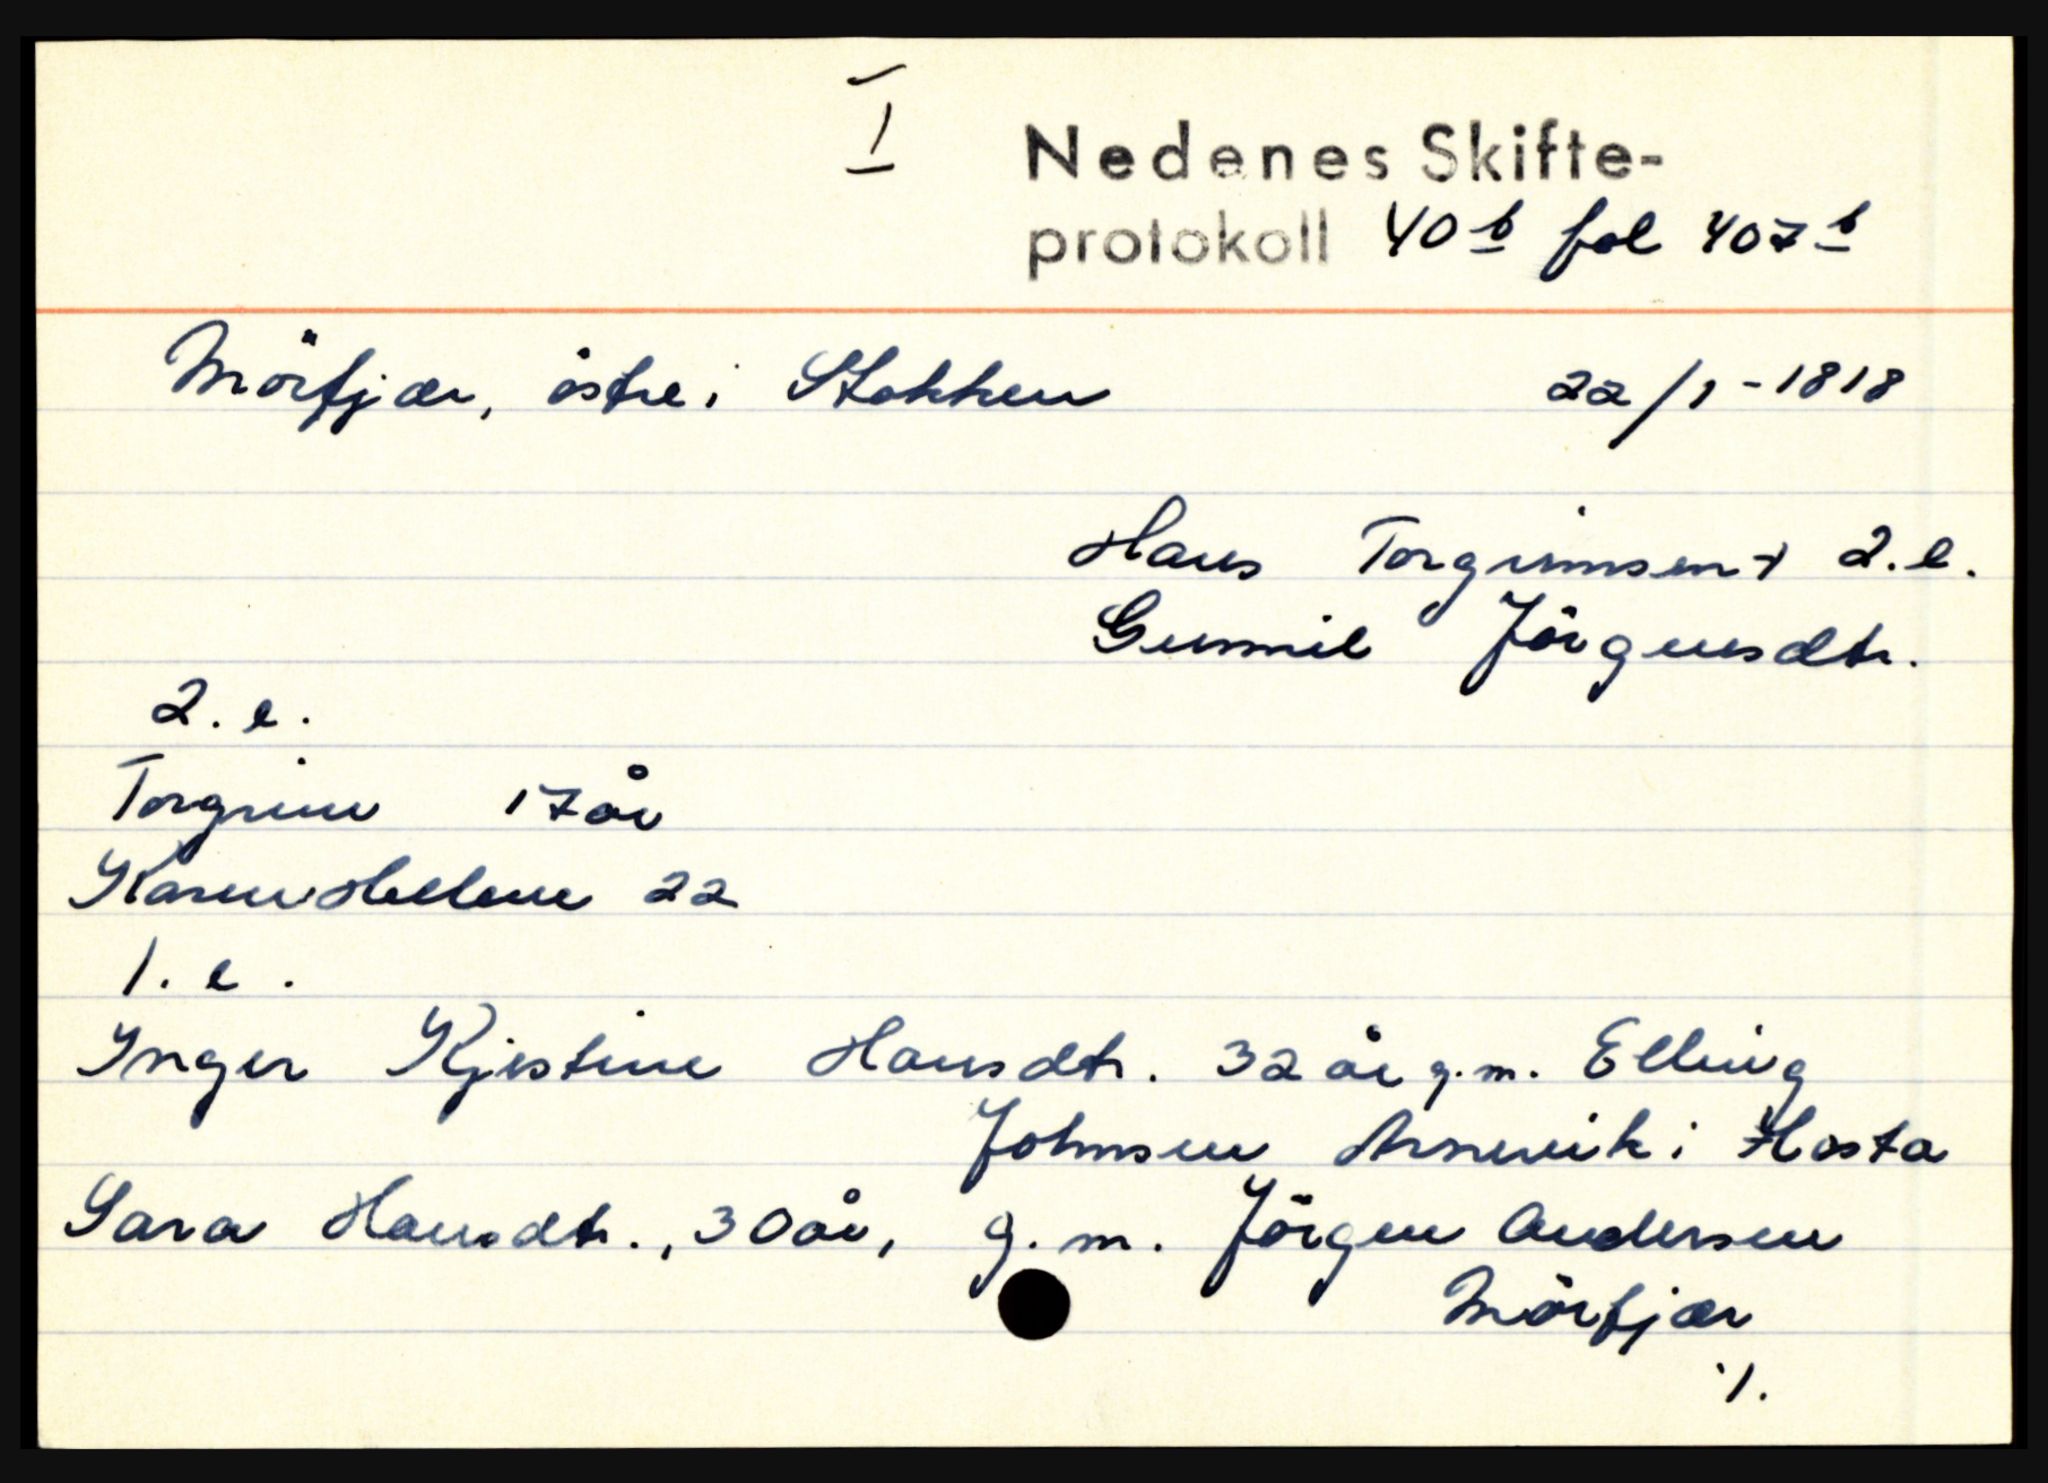 I
Nedenes Skifte-
protokoll 40 b fol 407 b
Mörfjær, östre i Stokken 22/1-1818
Hans Torgrimsen + 2.e.
Gunnil Jörgensdtr.
2.e.
Torgrim 17 år
Karen Hellene 22
1.e.
Inger Kjestine Hansdtr. 32 år g.m. Elling
Johnsen Arnevik i Hosta
Sara Hansdtr., 30 år, g.m. Jörgen Andersen
Mörfjær
·/.